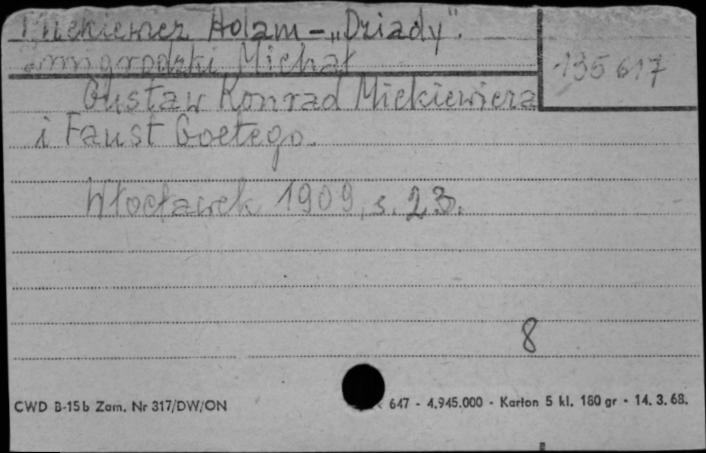 Mickiewicz Adam - „Dziady".
Żmigrodzki Michał
135617
Gustaw Konrad Mickiewicza
i Faust Goetego.
Włocławek 1909, s. 23.
8
CWD B-15b Zam. Nr 317/DW/ON
647 - 4.945.000 - Karton 5 kl. 180 gr - 14. 3. 68.